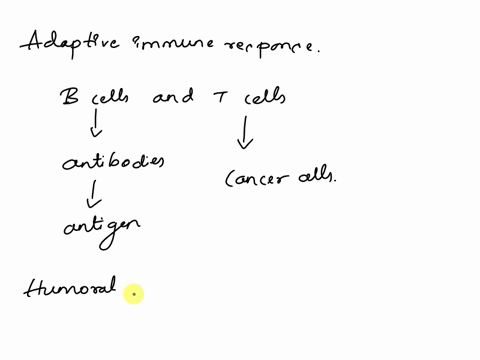 Adaptive immune response.
B cells and T cells
antibodies
Cancer cells.
antigen
Humoral